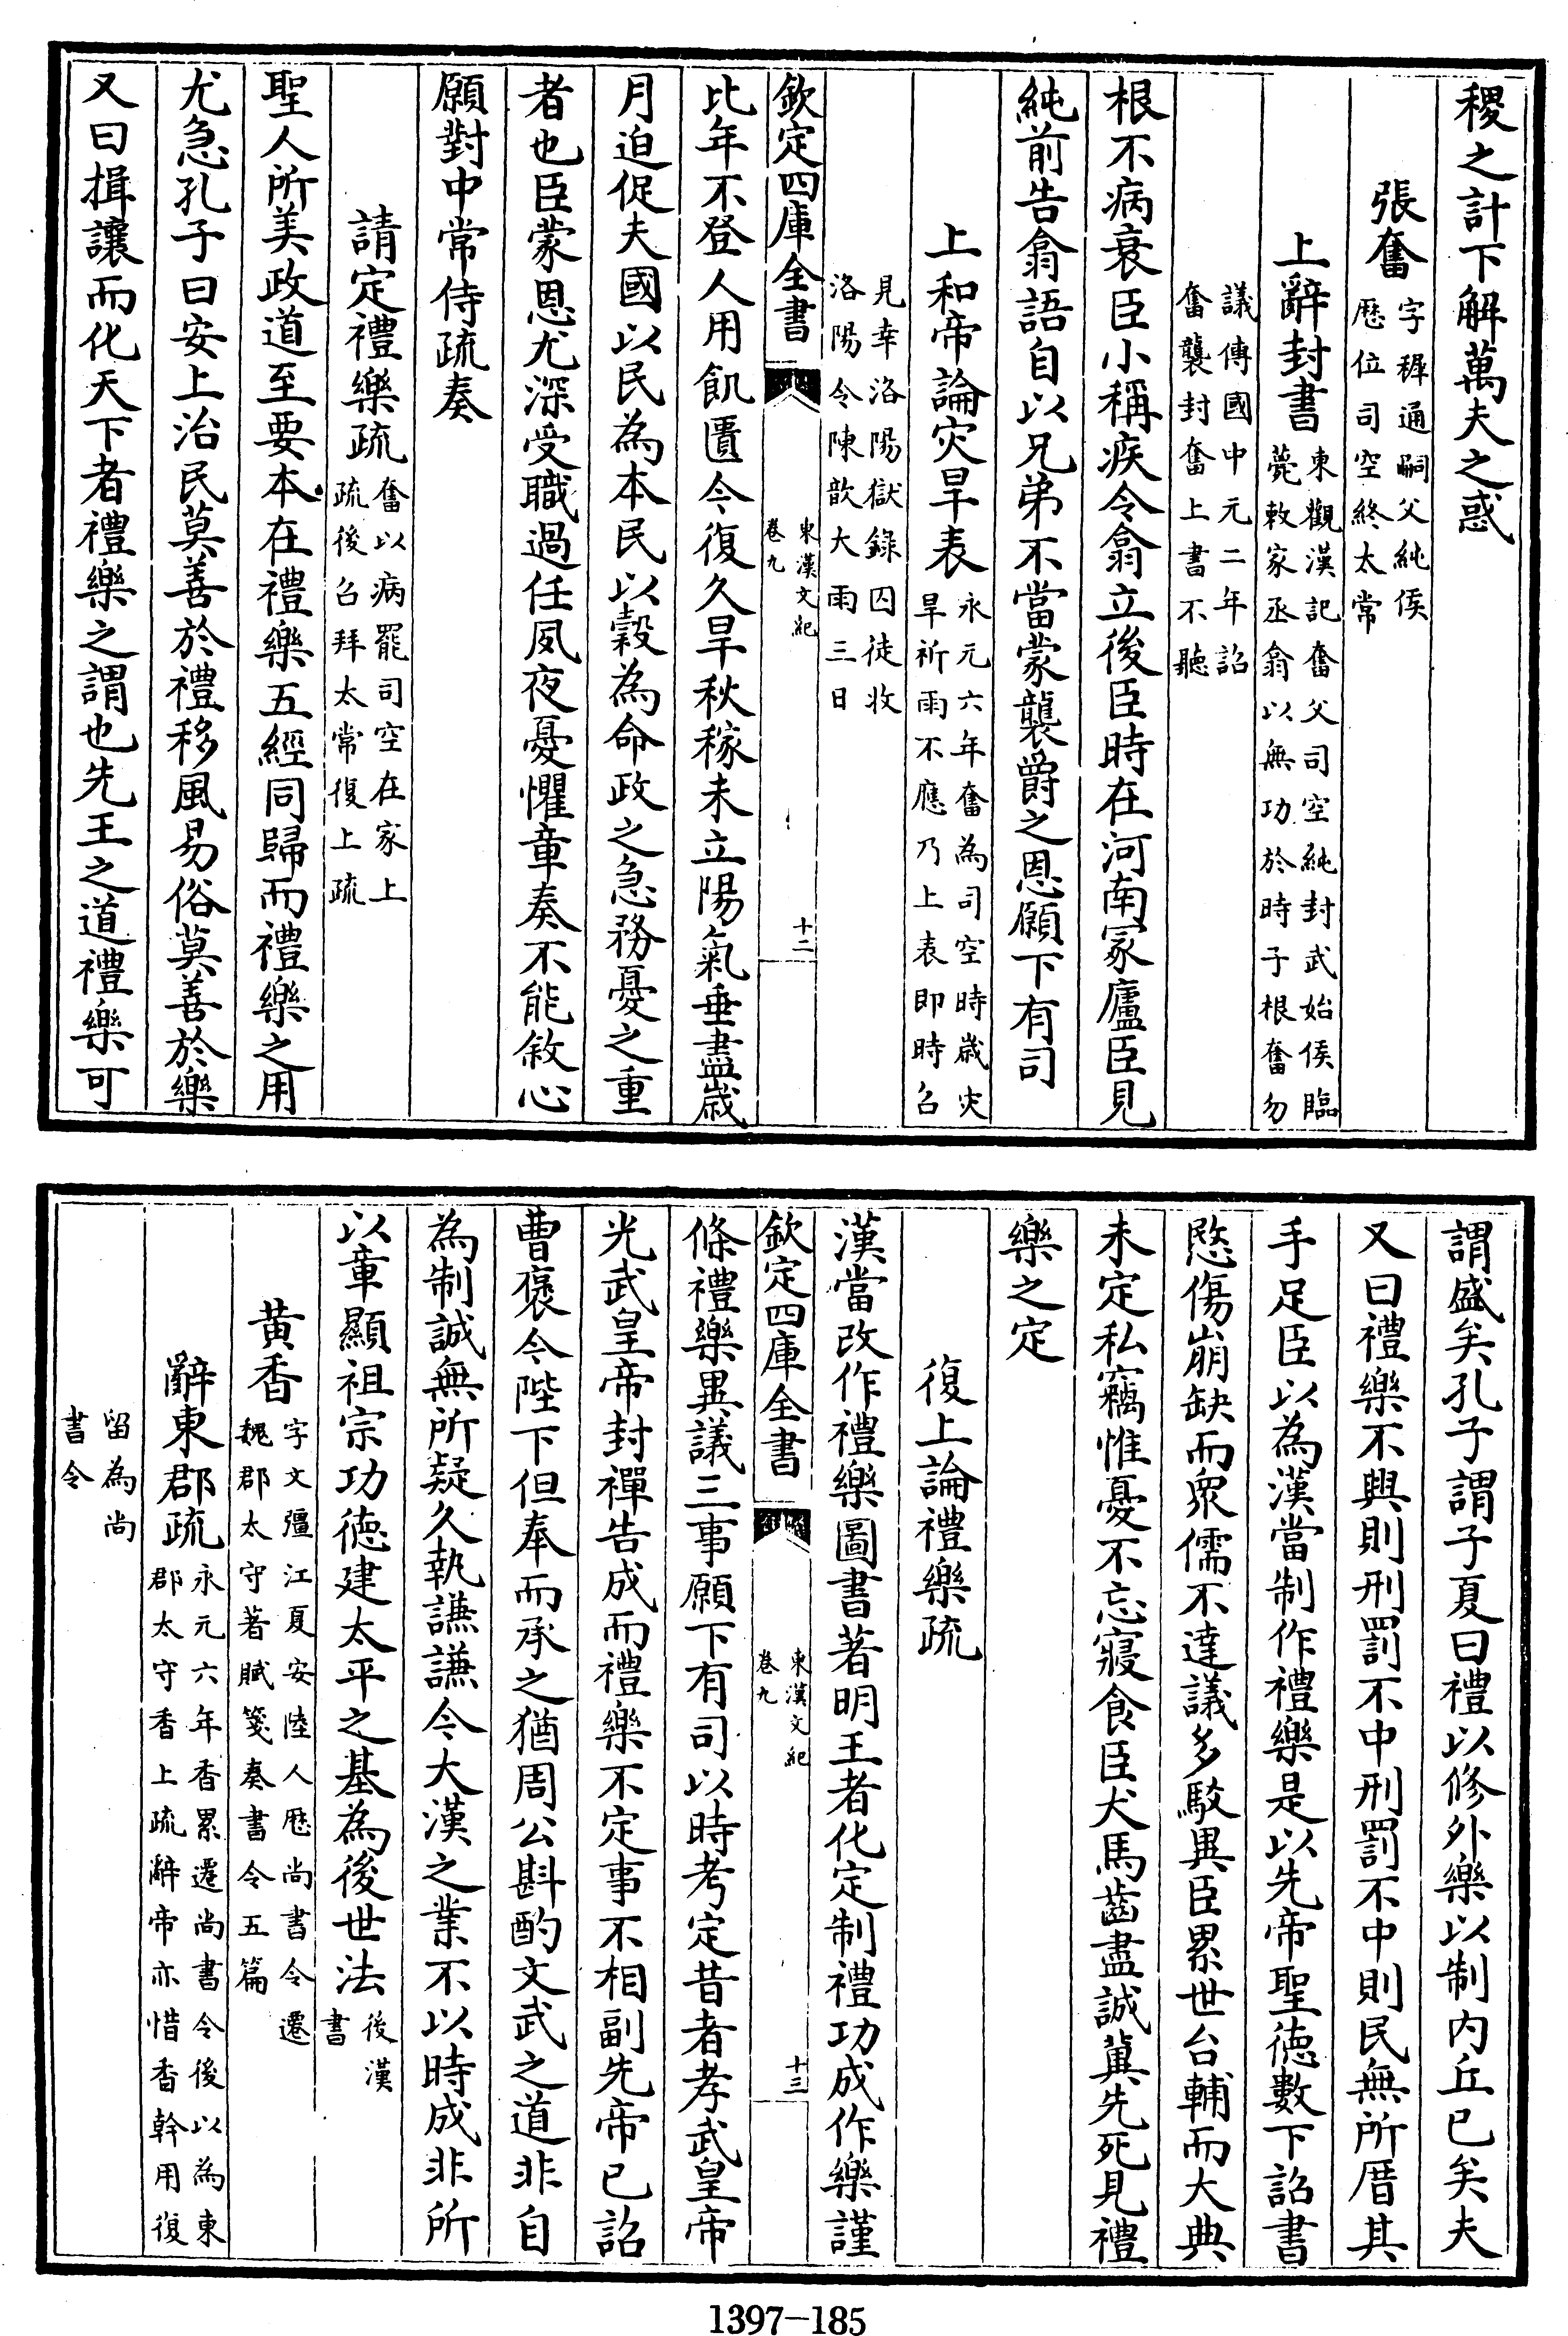 稷之計下解萬夫之惑
張奮字穉通嗣父純侯
歴位司空終太常
上辭封書東觀漢記奮父司空純封武始侯臨
薨敕家丞翕以無功於時子根奮勿
議傳國中元二年詔
奮襲封奮上書不聽
根不病衰臣小稱疾令翕立後臣時在河南冢廬臣見
純前告翕語自以兄弟不當蒙襲爵之恩願下有司
上和帝論灾旱表永元六年奮為司空時歳灾
旱祈雨不應乃上表即時召
見幸洛陽獄錄囚徒收
洛陽令陳歆大雨三日
欽定四庫全書
東漢文紀
卷九
十二
比年不登人用飢匱今復久旱秋稼未立陽氣垂盡歳
月迫促夫國以民為本民以穀為命政之急務憂之重
者也臣蒙恩尤深受職過任夙夜憂懼章奏不能敘心
願對中常侍疏奏
請定禮樂疏奮以病罷司空在家上
疏後召拜太常復上疏
聖人所美政道至要本在禮樂五經同歸而禮樂之用
尤急孔子曰安上治民莫善於禮移風易俗莫善於樂
又曰揖讓而化天下者禮樂之謂也先王之道禮樂可
謂盛矣孔子謂子夏曰禮以修外樂以制内丘已矣夫
又曰禮樂不興則刑罰不中刑罰不中則民無所厝其
手足臣以為漢當制作禮樂是以先帝聖徳數下詔書
愍傷崩缺而衆儒不達議多駮異臣累世台輔而大典
未定私竊惟憂不忘寢食臣犬馬齒盡誠冀先死見禮
樂之定
復上論禮樂疏
漢當改作禮樂圖書著明王者化定制禮功成作樂謹
欽定四庫全書
東漢文紀
卷九
十三
條禮樂異議三事願下有司以時考定昔者孝武皇帝
光武皇帝封禪告成而禮樂不定事不相副先帝已詔
曹褒今陛下但奉而承之猶周公斟酌文武之道非自
為制誠無所疑久執謙謙令大漢之業不以時成非所
以章顯祖宗功徳建太平之基為後世法後漢
書
黄香字文彊江夏安陸人歴尚書令遷
魏郡太守著賦箋奏書令五篇
辭東郡疏永元六年香累遷尚書令後以為東
郡太守香上疏辭帝亦惜香幹用復
留為尚
書令
1397-185